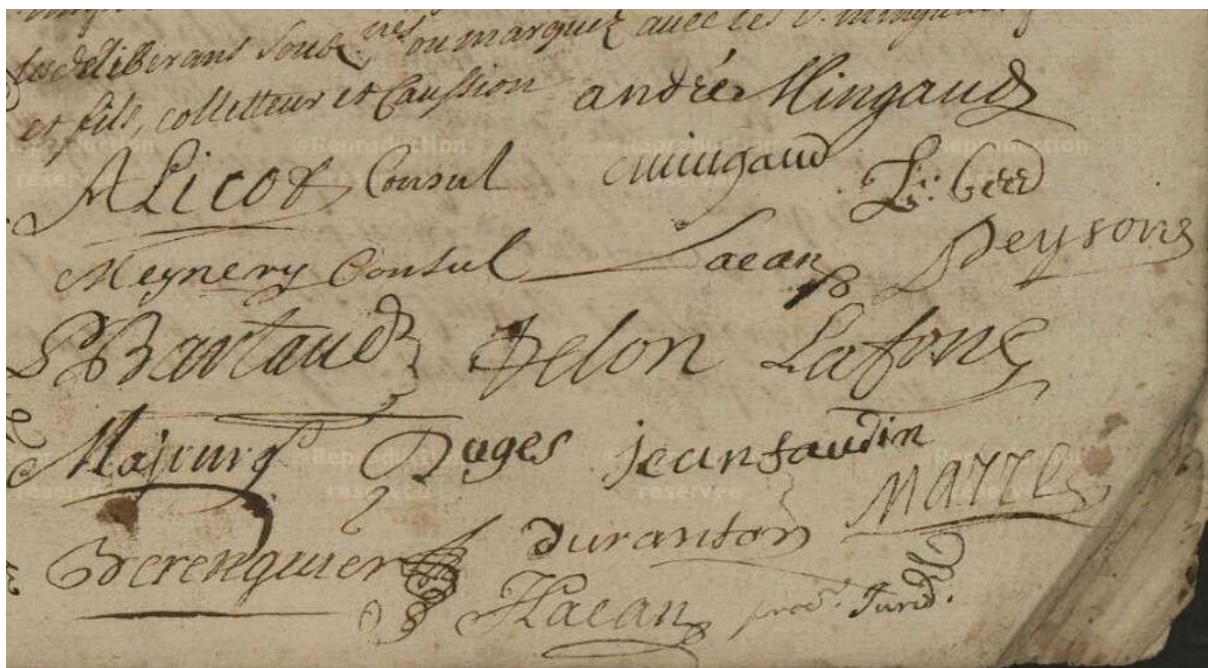 les deliberans sousz.nes ou marquez avec les S. Mingaud
et fils, colletteur et Caussion andré Mingaud
ALicot Consul Mingaud
Meynery Consul Lacan Peysons
Bartaud Delon Lafons
Majeurs Pages jean faudin
Marre
Berenguier duranton
Lacan proc.r Jurid.